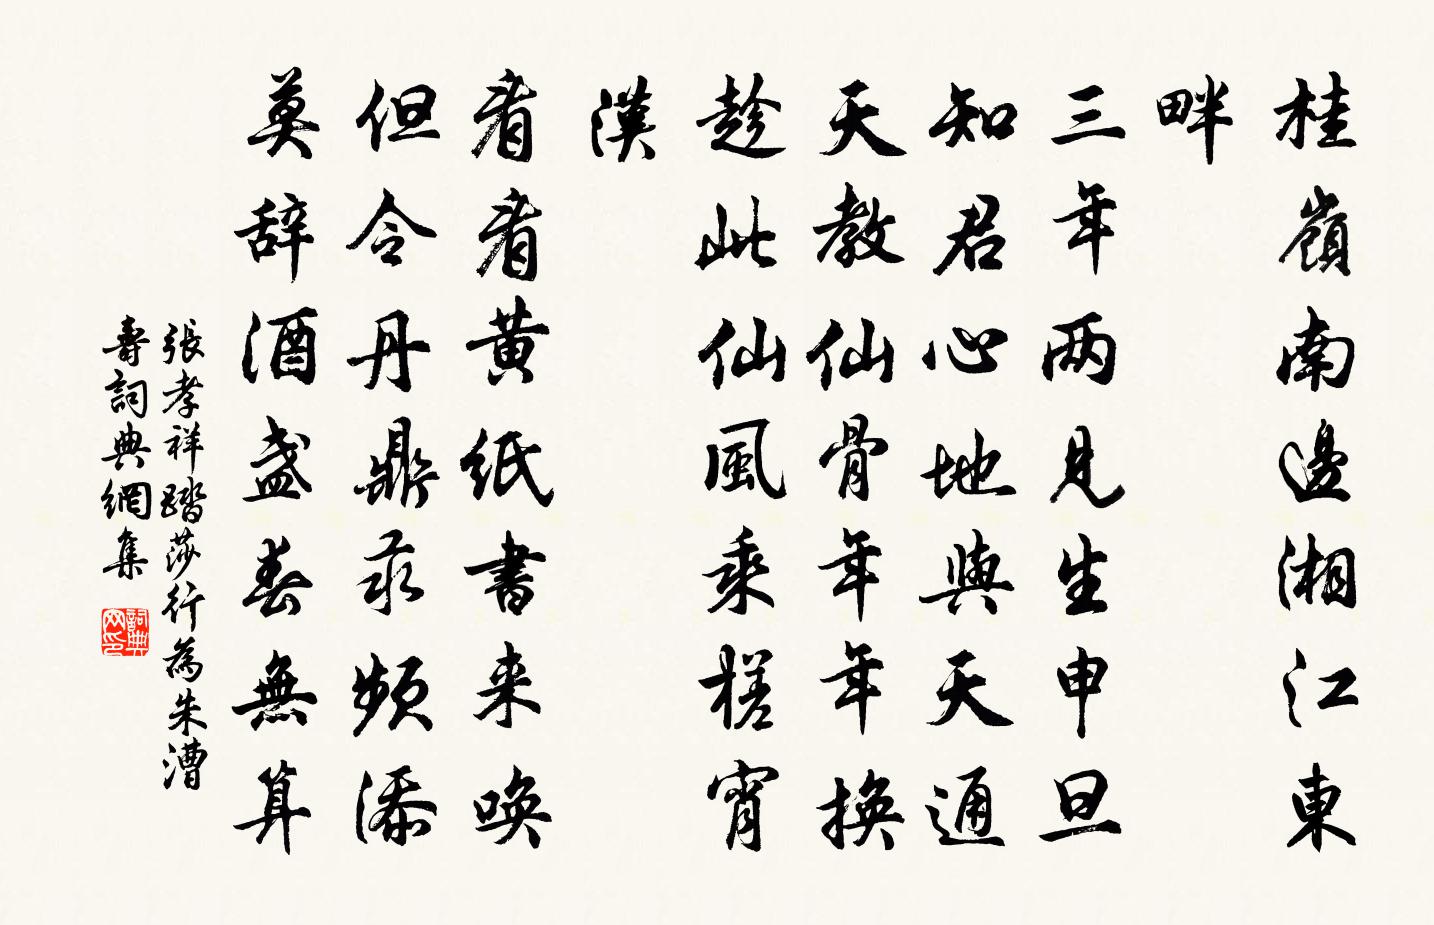 桂嶺南邊湘江東
畔
三年两見生申旦
知君心地與天通
天教仙骨年年換
趁此仙風乘槎宵
漢
看看黄紙書来喚
但令丹鼎汞頻添
莫辞酒盏春無算
張孝祥踏莎行為朱漕
壽詞典網集
詞典
网印